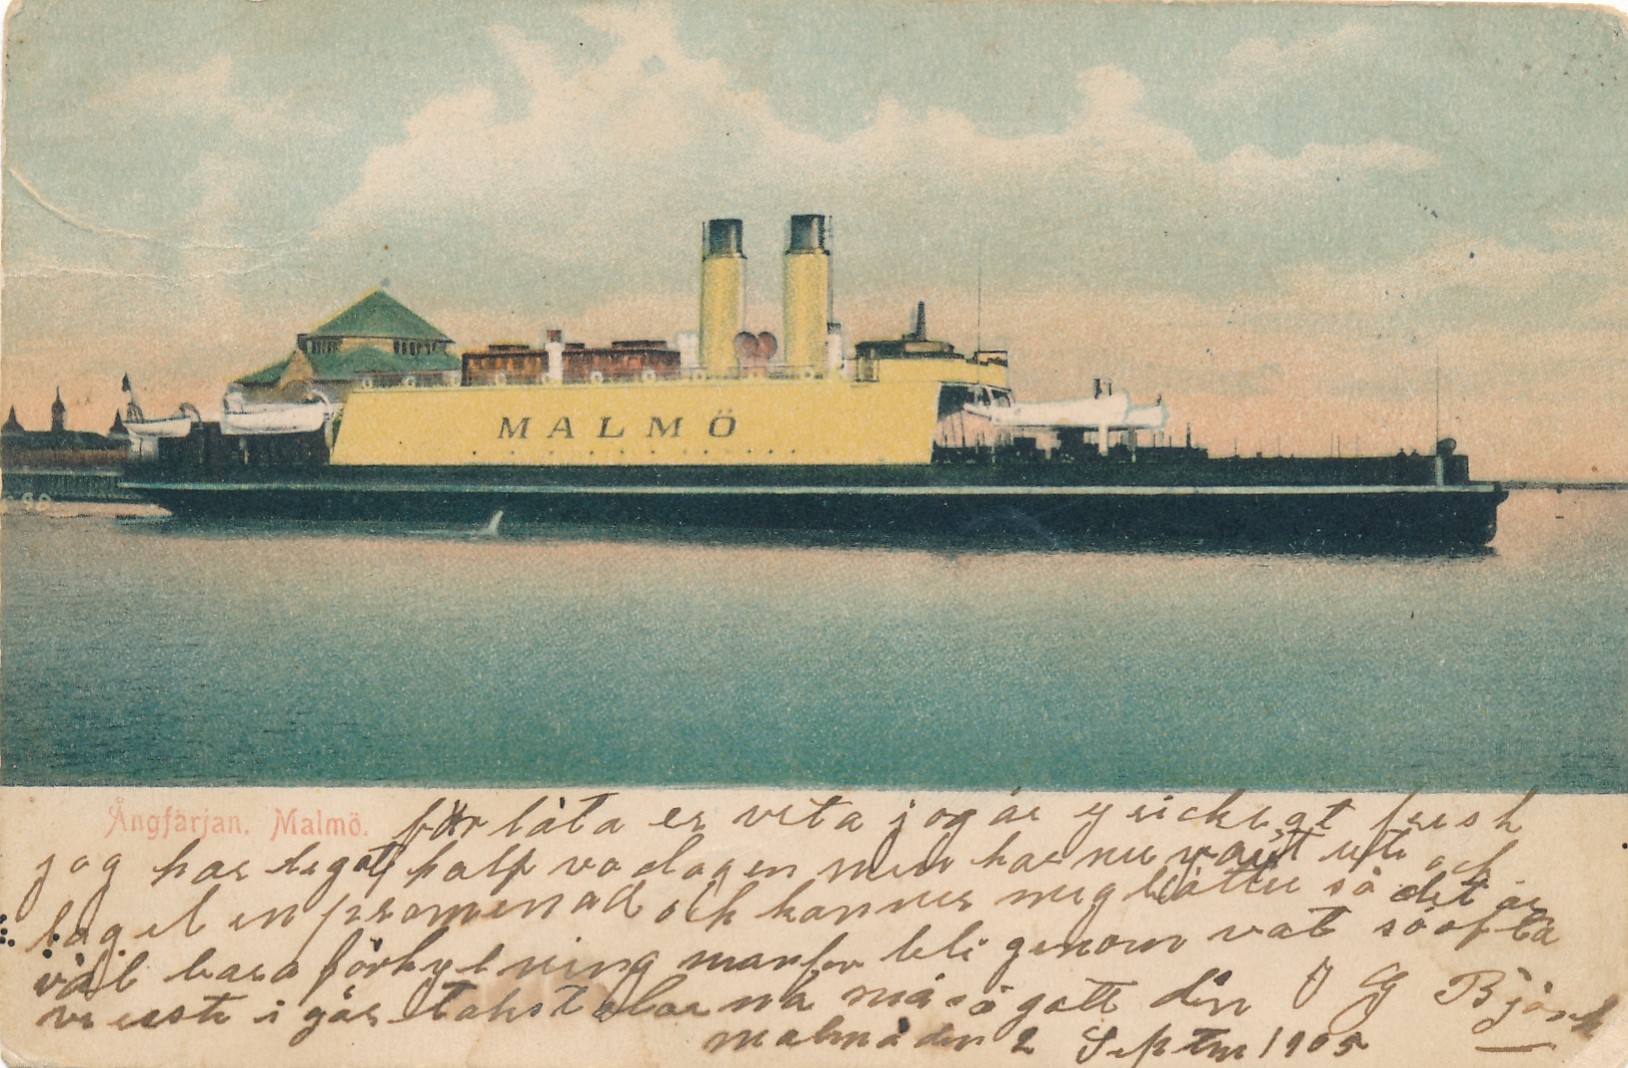 MALMÖ
Ångfärjan. Malmö.
för låta er veta jag är ej ricktigt frisk
jag har legat half va dagen men har nu vait ute och
taget en promenad och kanner mig bättre så det är
väl bara förkylning man får bli genom vat så ofta
i går må så gott din J G Björk
malmö den 2 Septm 1905